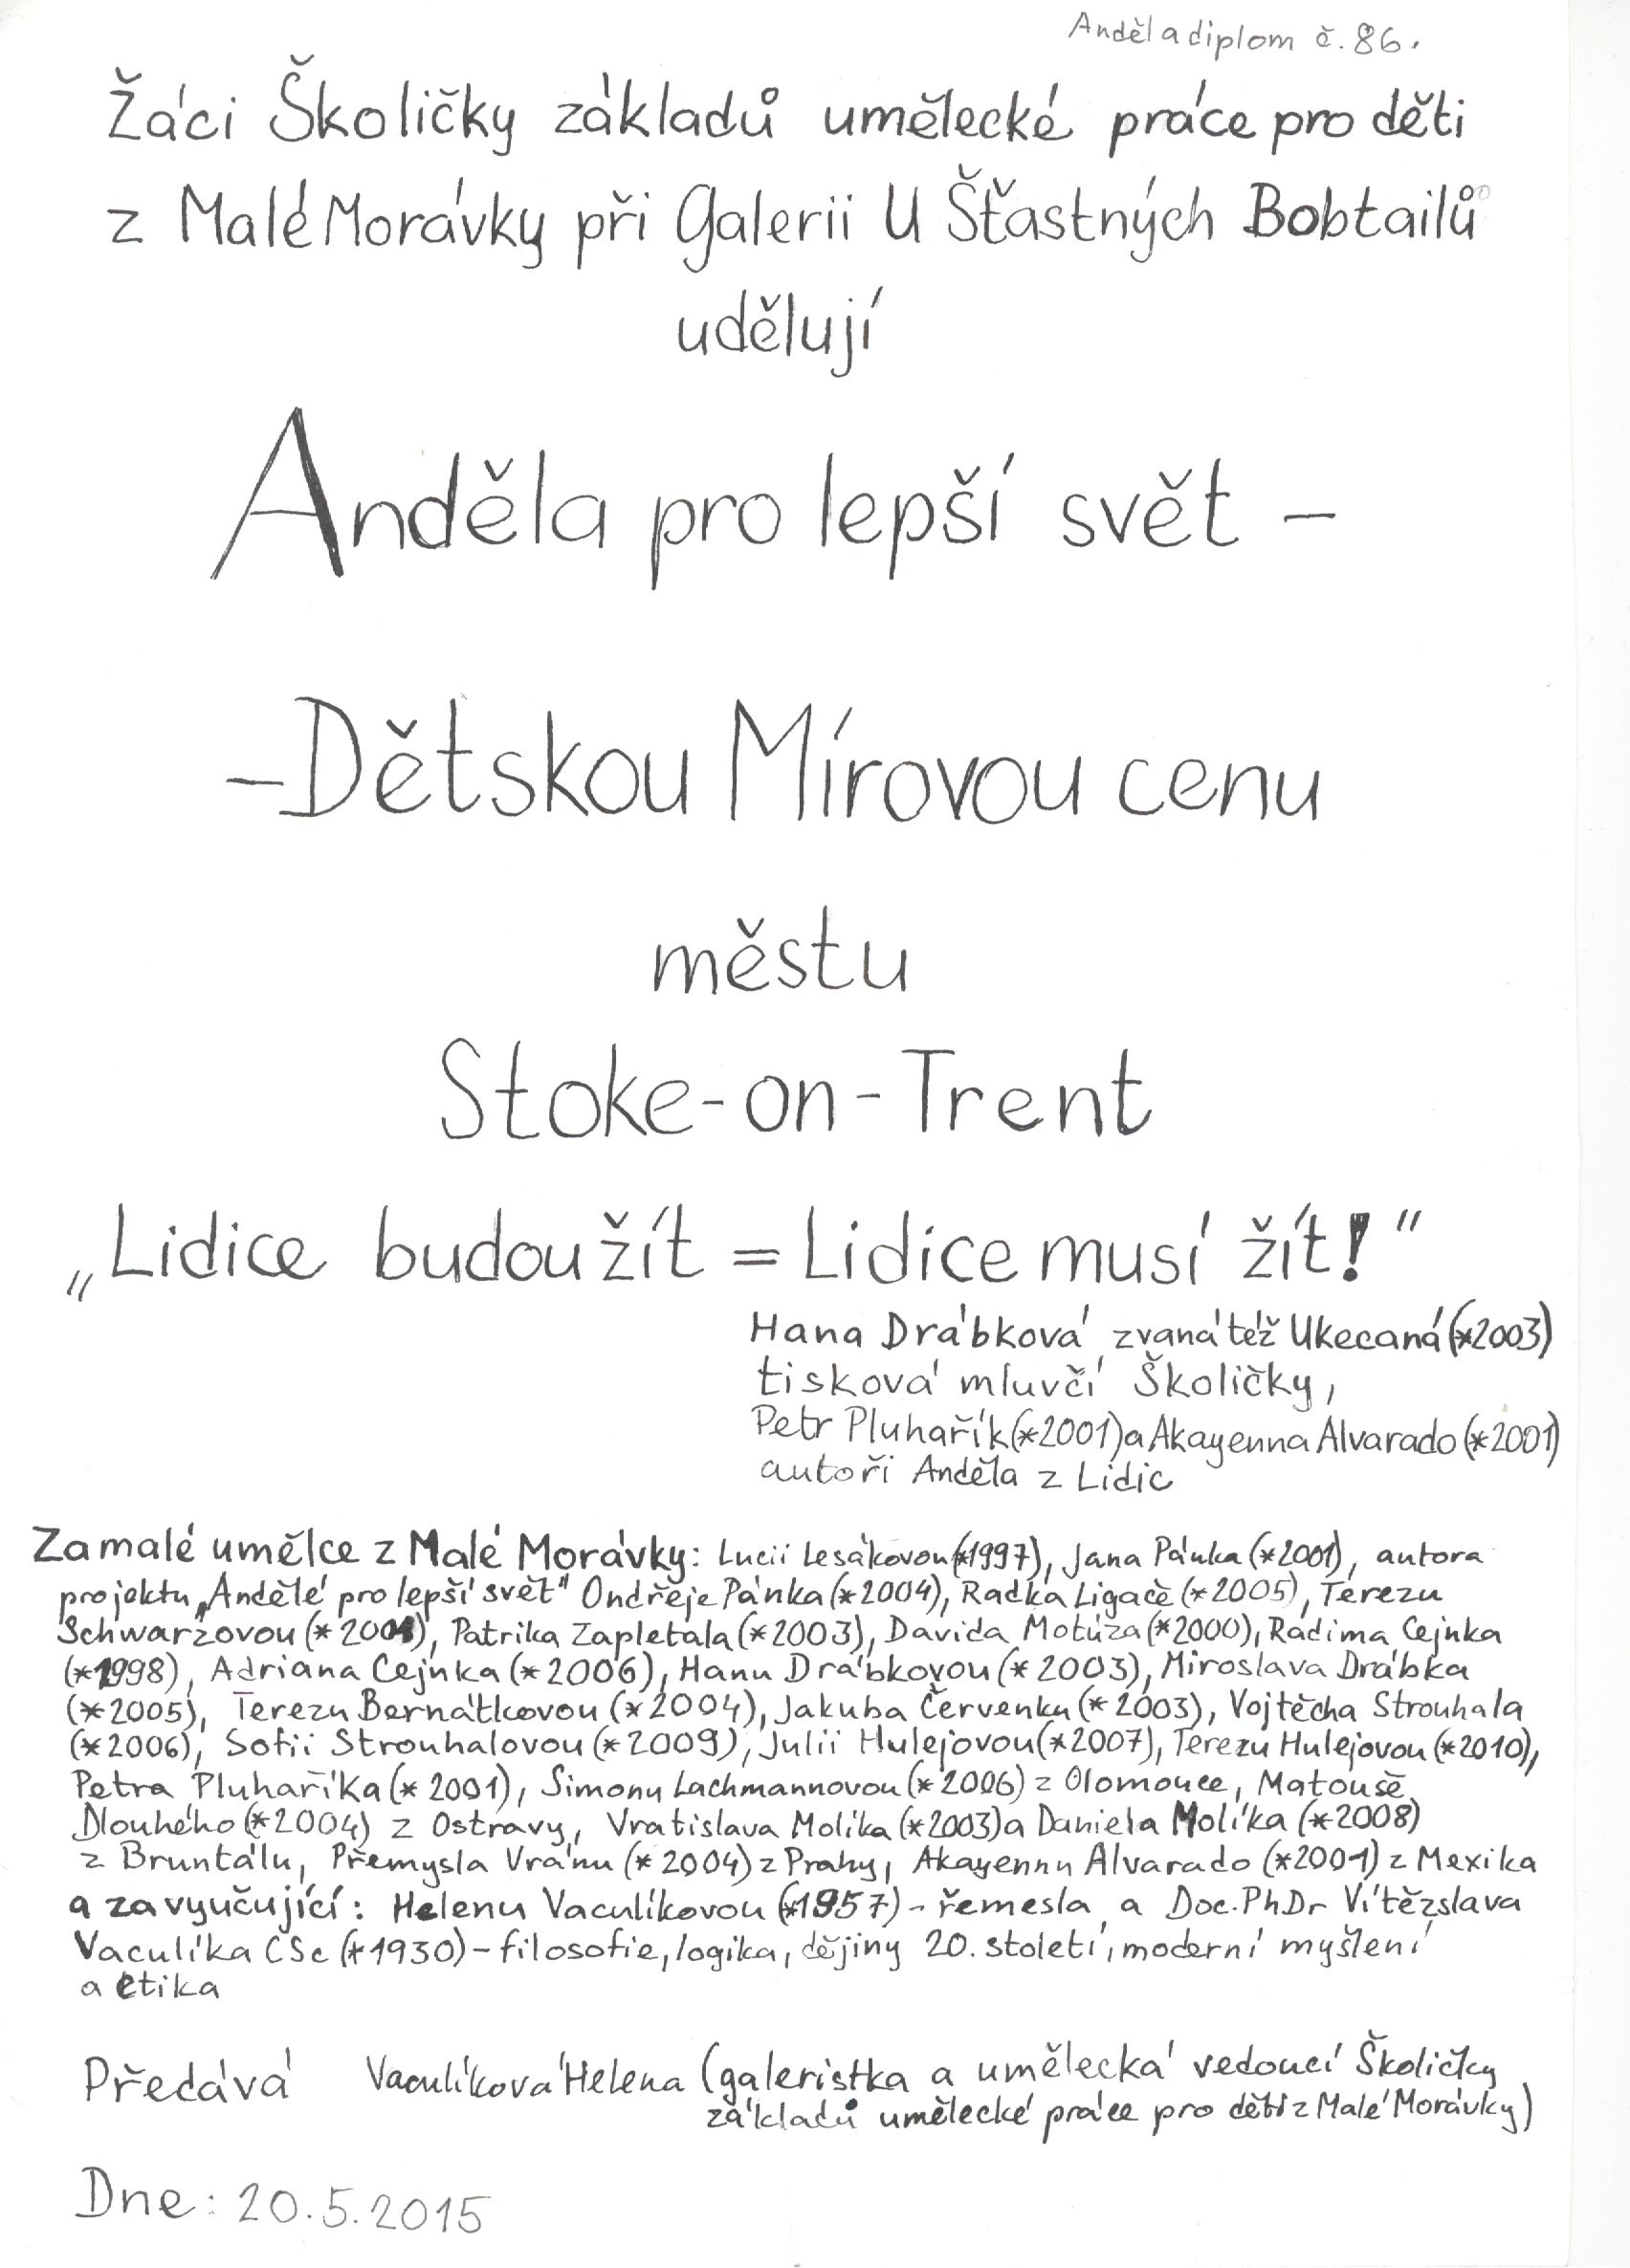 Anděl a diplom č. 86.
Žáci Školičky základů umělecké práce pro děti
z Malé Morávky při Galerii U Šťastných Bobtailů
udělují
Anděla pro lepší svět –
– Dětskou Mírovou cenu
městu
Stoke-on-Trent
„Lidice budou žít = Lidice musí žít!"
Hana Drábková zvaná též Ukecaná (*2003)
tisková mluvčí Školičky,
Petr Pluhařík (*2001) a Akayenna Alvarado (*2001)
autoři Anděla z Lidic
Za malé umělce z Malé Morávky: Lucii Lesákovou (*1997), Jana Pánka (*2001), autora
projektu „Andělé pro lepší svět" Ondřeje Pánka (*2004), Radka Ligače (*2005), Terezu
Schwarzovou (*2001), Patrika Zapletala (*2003), Davida Motúza (*2000), Radima Cejnka
(*1998), Adriana Cejnka (*2006), Hanu Drábkovou (*2003), Miroslava Drábka
(*2005), Terezu Bernátkovou (*2004), Jakuba Červenku (*2003), Vojtěcha Strouhala
(*2006), Sofii Strouhalovou (*2009), Julii Hulejovou (*2007), Terezu Hulejovou (*2010),
Petra Pluhaříka (*2001), Simonu Lachmannovou (*2006) z Olomouce, Matouše
Dlouhého (*2004) z Ostravy, Vratislava Molíka (*2003) a Daniela Molíka (*2008)
z Bruntálu, Přemysla Vránu (*2004) z Prahy, Akayennu Alvarado (*2001) z Mexika
a za vyučující: Helenu Vaculíkovou (*1957) - řemesla a Doc. PhDr Vítězslava
Vaculíka CSc (*1930) – filosofie, logika, dějiny 20. století, moderní myšlení
a etika
Předává Vaculíková Helena (galeristka a umělecká vedoucí Školičky
základů umělecké práce pro děti z Malé Morávky)
Dne: 20.5.2015